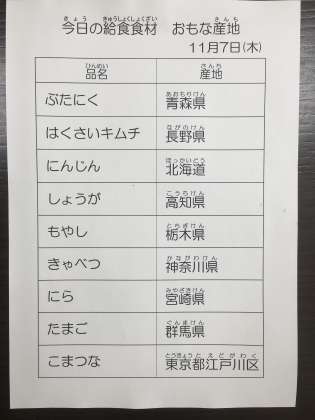 今日の給食食材 おもな産地
11月7日(木)
品名 産地
ぶたにく 青森県
はくさいキムチ 長野県
にんじん 北海道
しょうが 高知県
もやし 栃木県
きゃべつ 神奈川県
にら 宮崎県
たまご 群馬県
こまつな 東京都江戸川区